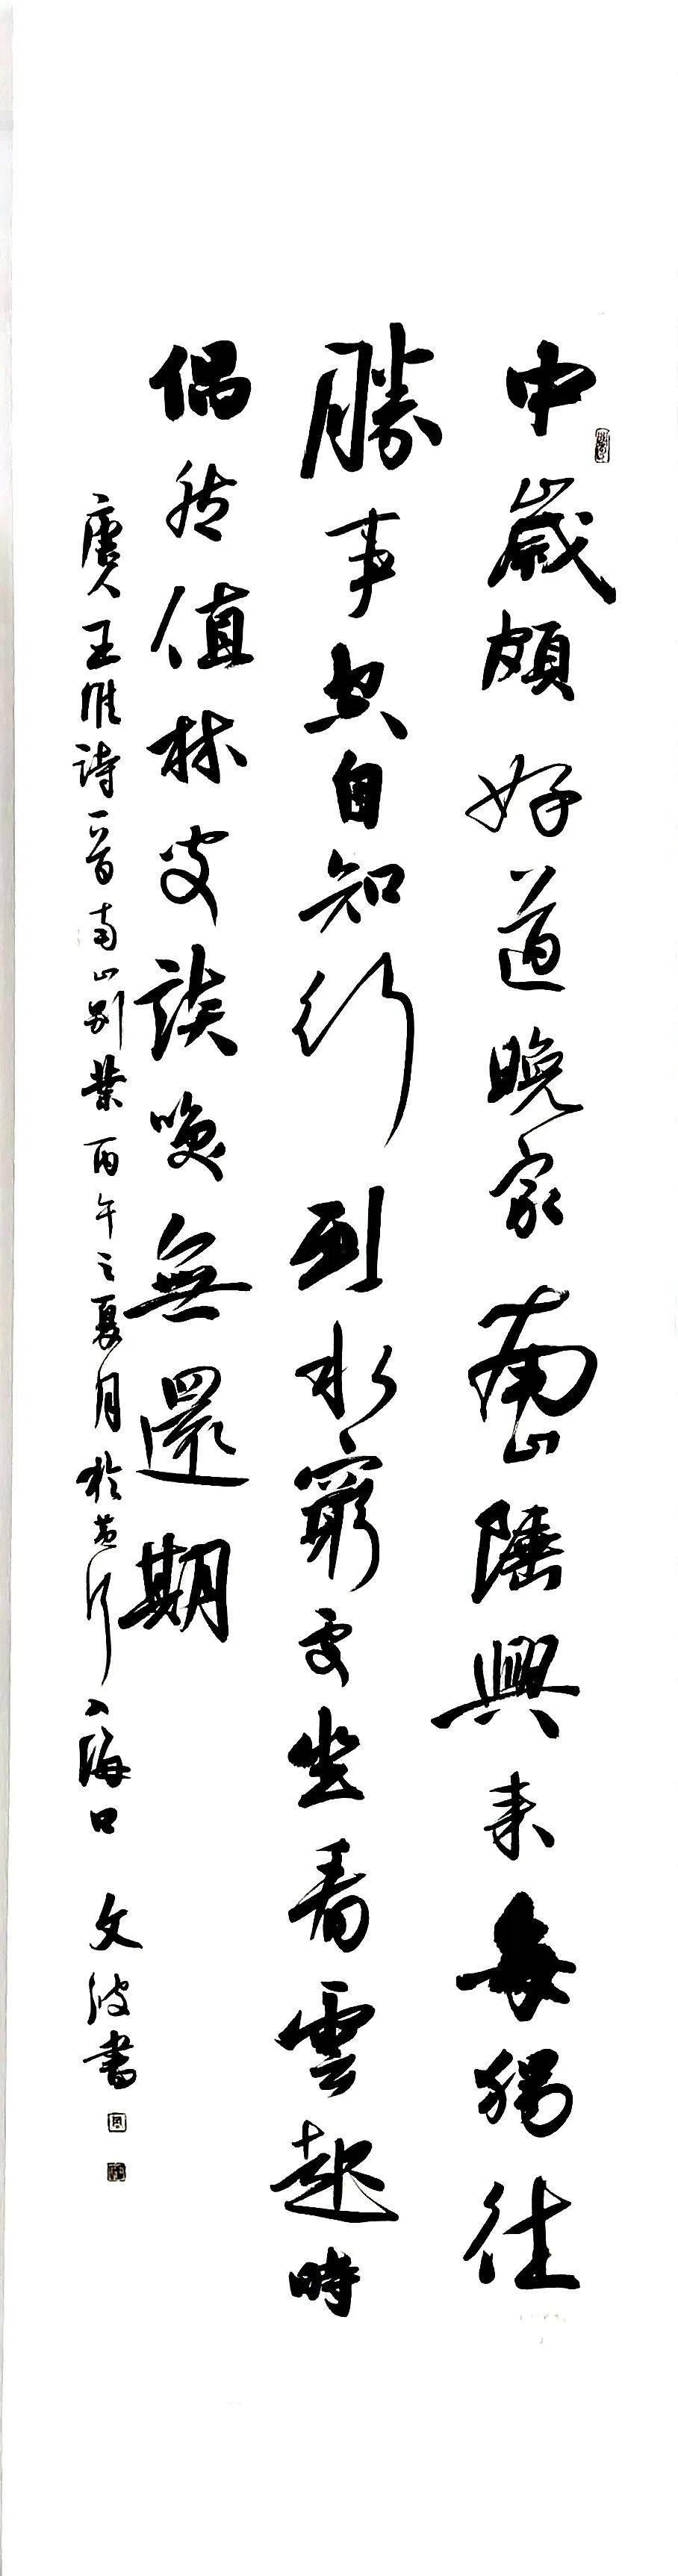 中歲頗好道晚家南山陲興來每獨往
勝事空自知行到水窮處坐看雲起時
偶然值林叟談咲無還期
唐人王維詩一首南山別業丙午之夏月於黃河入海口 文波書